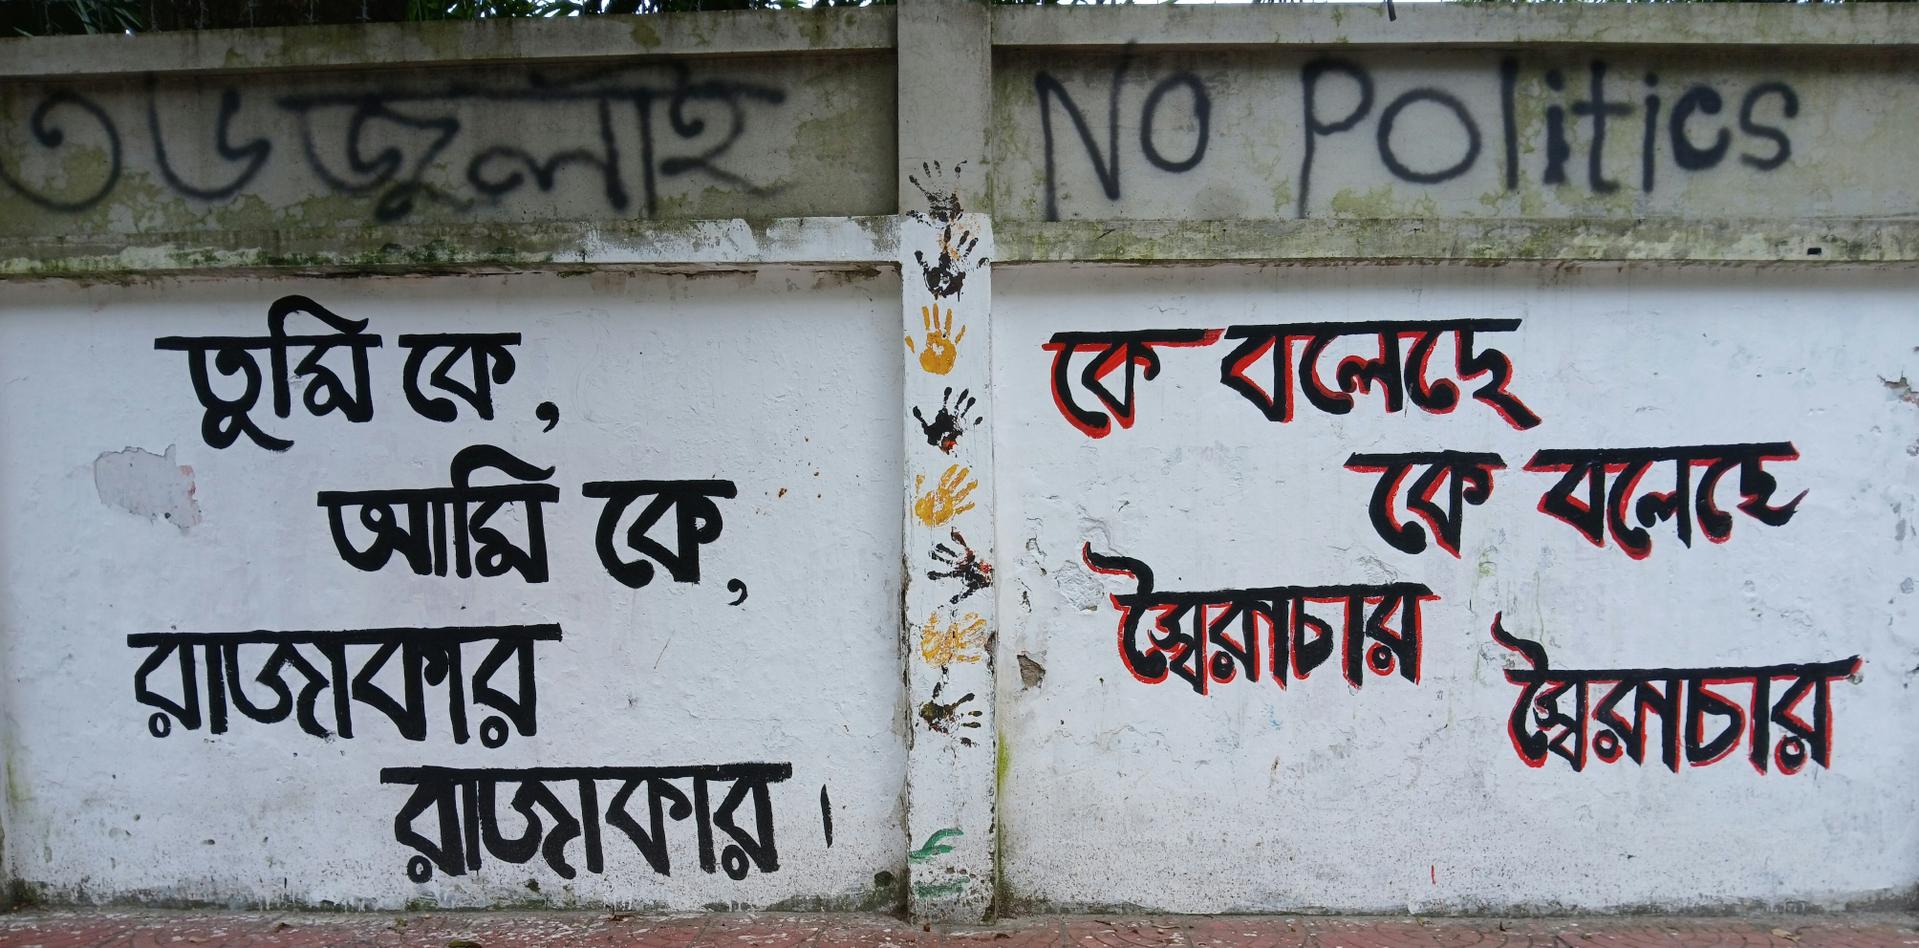 ৩৬ জুলাই
No Politics
তুমি কে,
আমি কে,
রাজাকার
রাজাকার।
কে বলেছে
কে বলেছে
স্বৈরাচার
স্বৈরাচার